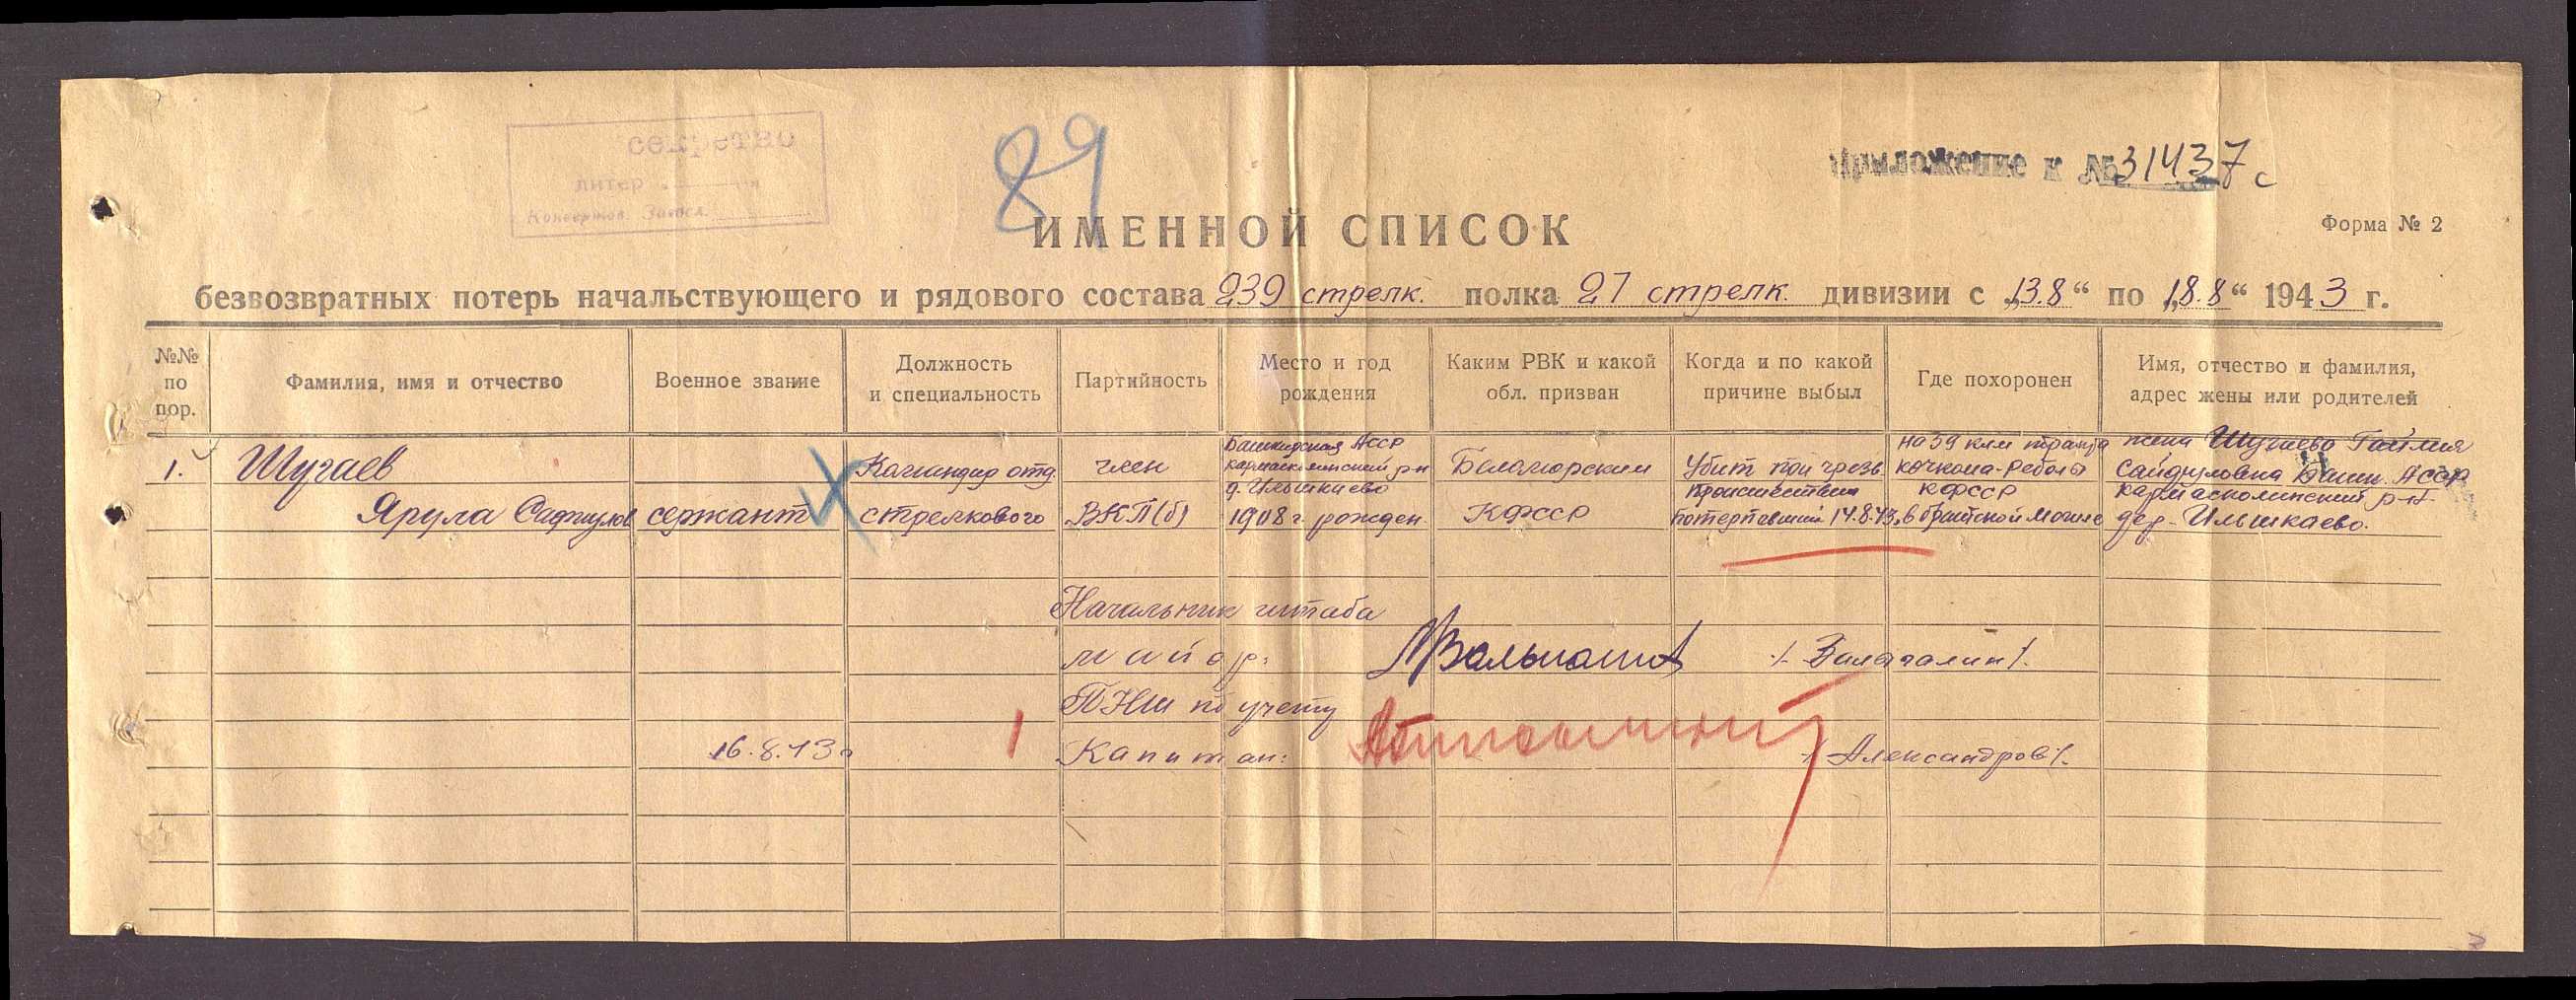 секретно
литер
89
Приложение к №31437с
ИМЕННОЙ СПИСОК
Форма № 2
безвозвратных потерь начальствующего и рядового состава 239 стрелк. полка 27 стрелк. дивизии с „13.8“ по „18.8“ 1943 г.
№№ по пор.
Фамилия, имя и отчество
Военное звание
Должность и специальность
Партийность
Место и год рождения
Каким РВК и какой обл. призван
Когда и по какой причине выбыл
Где похоронен
Имя, отчество и фамилия, адрес жены или родителей
1.
Шугаев
Ярула
сержант
Командир отд.
стрелкового
член
ВКП(б)
Башкирская АССР
кармаскалинский р-н
д. Ильшкаево
1908 г. рожден
Беломорским
КФССР
Убит при чрезв.
происшествии
14.8.43
на 39 клм
кочкома-Реболы
КФССР
в братской могиле
жена Шугаева
Башк. АССР
кармаскалинский р-н
дер. Ильшкаево.
Начальник штаба
майор:
ПНШ по учету
16.8.43г
Капитан:
/Александров/.